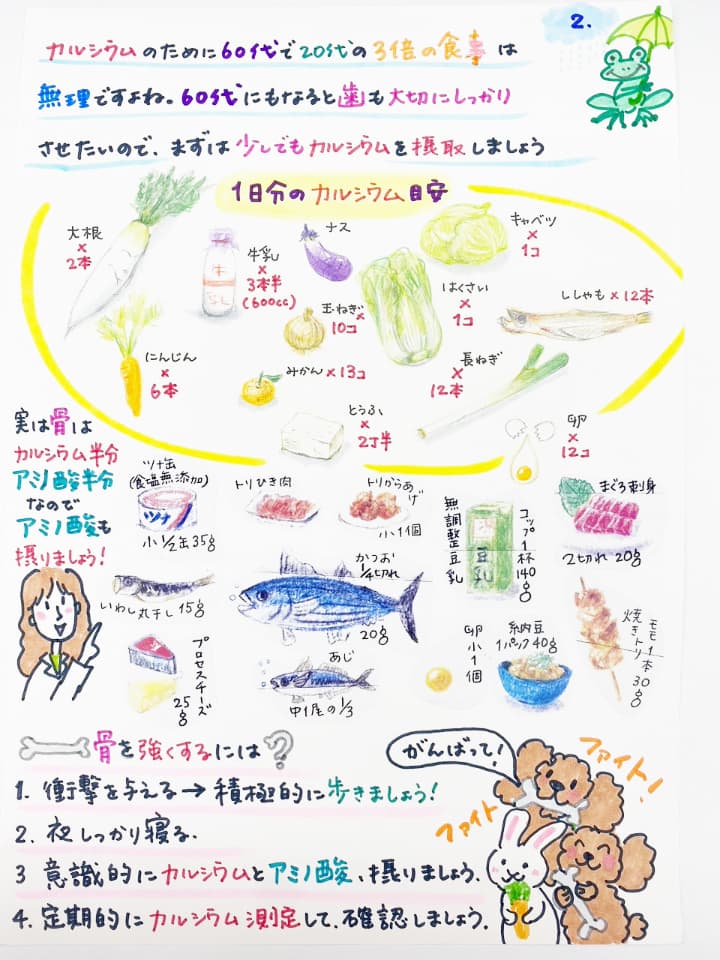 2.
カルシウムのために60代で20代の3倍の食事は
無理ですよね。60代にもなると歯も大切にしっかり
させたいので、まずは少しでもカルシウムを摂取しましょう
1日分のカルシウム目安
大根
×
2本
牛乳
×
3本半
(600cc)
牛
乳
ナス
キャベツ
×
1コ
玉ねぎ×
10コ
はくさい
×
1コ
ししゃも×12本
にんじん
×
6本
みかん×13コ
長ねぎ
×
12本
とうふ
×
2丁半
卵
×
12コ
実は骨は
カルシウム半分
アミノ酸半分
なので
アミノ酸も
摂りましょう!
ツナ缶
(食塩無添加)
ツナ
小1/2缶35g
トリひき肉
トリからあげ
小1個
無調整豆乳
豆乳
コップ1杯140g
まぐろ刺身
2切れ20g
いわし丸干し15g
かつお
1/4切れ
20g
プロセスチーズ
25g
あじ
中1尾の1/3
卵小1個
納豆
1パック40g
モモ1本
焼きトリ30g
骨を強くするには?
1. 衝撃を与える→積極的に歩きましょう!
2. 夜しっかり寝る.
3 意識的にカルシウムとアミノ酸、摂りましょう.
4. 定期的にカルシウム測定して、確認しましょう.
がんばって!
ファイト!
ファイト